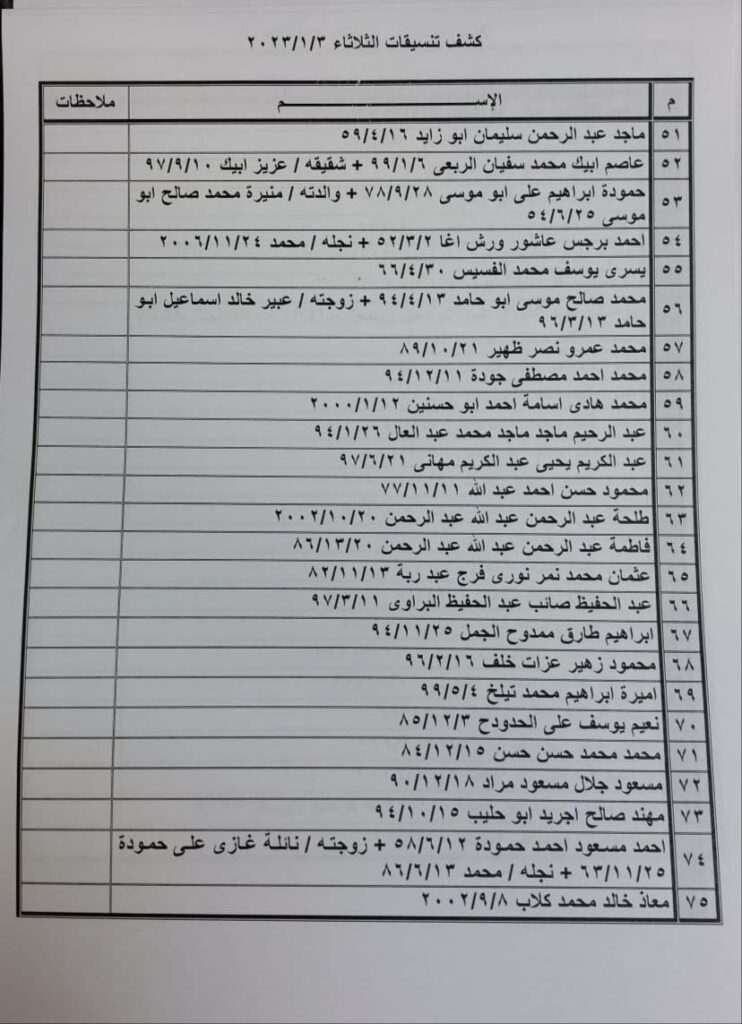 كشف تنسيقات الثلاثاء ٢٠٢٣/١/٣
م الإســــــم ملاحظات
٥١ ماجد عبد الرحمن سليمان ابو زايد ٥٩/٤/١٦
٥٢ عاصم ابيك محمد سفيان الربعى ٩٩/١/٦ + شقيقه / عزيز ابيك ٩٧/٩/١٠
٥٣ حمودة ابراهيم على ابو موسى ٧٨/٩/٢٨ + والدته / منيرة محمد صالح ابو
موسى ٥٤/٦/٢٥
٥٤ احمد برجس عاشور ورش اغا ٥٢/٣/٢ + نجله / محمد ٢٠٠٦/١١/٢٤
٥٥ يسرى يوسف محمد الفسيس ٦٦/٤/٣٠
٥٦ محمد صالح موسى ابو حامد ٩٤/٤/١٣ + زوجته / عبير خالد اسماعيل ابو
حامد ٩٦/٣/١٣
٥٧ محمد عمرو نصر ظهير ٨٩/١٠/٢١
٥٨ محمد احمد مصطفى جودة ٩٤/١٢/١١
٥٩ محمد هادى اسامة احمد ابو حسنين ٢٠٠٠/١/١٢
٦٠ عبد الرحيم ماجد ماجد محمد عبد العال ٩٤/١/٢٦
٦١ عبد الكريم يحيى عبد الكريم مهانى ٩٧/٦/٢١
٦٢ محمود حسن احمد عبد الله ٧٧/١١/١١
٦٣ طلحة عبد الرحمن عبد الله عبد الرحمن ٢٠٠٢/١٠/٢٠
٦٤ فاطمة عبد الرحمن عبد الله عبد الرحمن ٨٦/١٣/٢٠
٦٥ عثمان محمد نمر نورى فرج عبد ربة ٨٢/١١/١٣
٦٦ عبد الحفيظ صائب عبد الحفيظ البراوى ٩٧/٣/١١
٦٧ ابراهيم طارق ممدوح الجمل ٩٤/١١/٢٥
٦٨ محمود زهير عزات خلف ٩٦/٢/١٦
٦٩ اميرة ابراهيم محمد تيلخ ٩٩/٥/٤
٧٠ نعيم يوسف على الحدودح ٨٥/١٢/٣
٧١ محمد محمد حسن حسن ٨٤/١٢/١٥
٧٢ مسعود جلال مسعود مراد ٩٠/١٢/١٨
٧٣ مهند صالح اجريد ابو حليب ٩٤/١٠/١٥
٧٤ احمد مسعود احمد حمودة ٥٨/٦/١٢ + زوجته / نائلة غازى على حمودة
٦٣/١١/٢٥ + نجله / محمد ٨٦/٦/١٣
٧٥ معاذ خالد محمد كلاب ٢٠٠٢/٩/٨